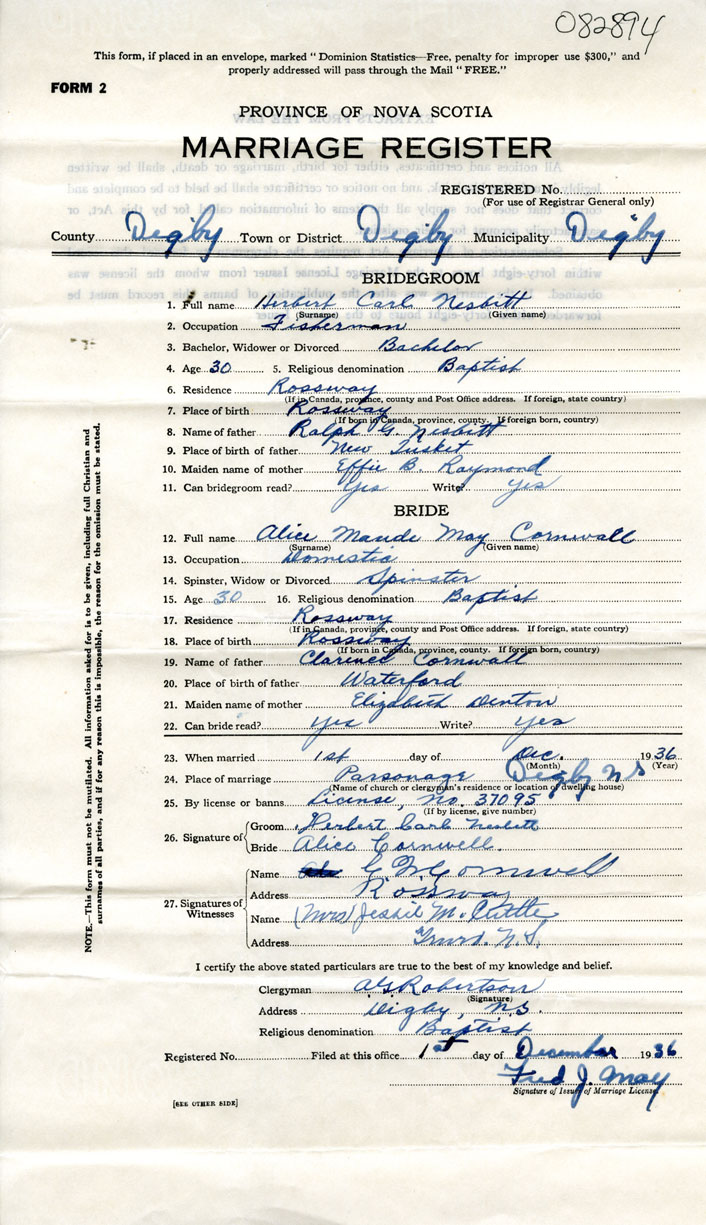 082894
This form, if placed in an envelope, marked "Dominion Statistics—Free, penalty for improper use $300," and
properly addressed will pass through the Mail "FREE."
FORM 2
PROVINCE OF NOVA SCOTIA
MARRIAGE REGISTER
REGISTERED No.
(For use of Registrar General only)
County Digby Town or District Digby Municipality Digby
BRIDEGROOM
1. Full name Herbert Carl Nesbitt
(Surname) (Given name)
2. Occupation Fisherman
3. Bachelor, Widower or Divorced Bachelor
4. Age 30 5. Religious denomination Baptist
6. Residence Rossway
(If in Canada, province, county and Post Office address. If foreign, state country)
7. Place of birth Rossway
(If born in Canada, province, county. If foreign born, country)
8. Name of father Ralph G. Nesbitt
9. Place of birth of father New Tusket
10. Maiden name of mother Effie B. Raymond
11. Can bridegroom read? Yes Write? Yes
BRIDE
12. Full name Alice Maude May Cornwall
(Surname) (Given name)
13. Occupation Domestic
14. Spinster, Widow or Divorced Spinster
15. Age 30 16. Religious denomination Baptist
17. Residence Rossway
(If in Canada, province, county and Post Office address. If foreign, state country)
18. Place of birth Rossway
(If born in Canada, province, county. If foreign born, country)
19. Name of father Clarence Cornwall
20. Place of birth of father Waterford
21. Maiden name of mother Elizabeth Denton
22. Can bride read? Yes Write? Yes
23. When married 1st day of Dec. 1936
(Month) (Year)
24. Place of marriage Parsonage Digby N S
(Name of church or clergyman's residence or location of dwelling house)
25. By license or banns License, No. 37095
(If by license, give number)
26. Signature of
Groom Herbert Carl Nesbitt
Bride Alice Cornwell.
27. Signatures of Witnesses
Name Cornwell
Address Rossway
Name (Mrs) Jessie M.
Address N.S.
I certify the above stated particulars are true to the best of my knowledge and belief.
Clergyman Robertson
(Signature)
Address Digby, N.S.
Religious denomination Baptist
Registered No. Filed at this office 1st day of December 1936
Fred J. May
Signature of Issuer of Marriage License
[SEE OTHER SIDE]
NOTE.—This form must not be mutilated. All information asked for is to be given, including full Christian and
surnames of all parties, and if for any reason this is impossible, the reason for the omission must be stated.